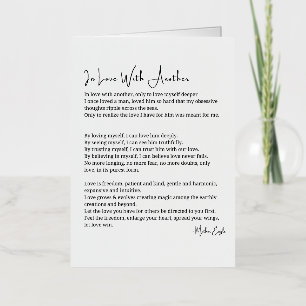 In Love With Another
In love with another, only to love myself deeper.
I once loved a man, loved him so hard that my obsessive
thoughts ripple across the seas.
Only to realize the love I have for him was meant for me.
By loving myself, I can love him deeply.
By seeing myself, I can see him truthfully.
By trusting myself, I can trust him with our love.
By believing in myself, I can believe love never fails.
No more longing, no more fear, no more doubts, only
love, in its purest form.
Love is freedom, patient and kind, gentle and harmonic,
expansive and intuitive.
Love grows & evolves creating magic among the earthly
creations and beyond.
Let the love you have for others be directed to you first.
Feel the freedom, enlarge your heart, spread your wings,
let love win.